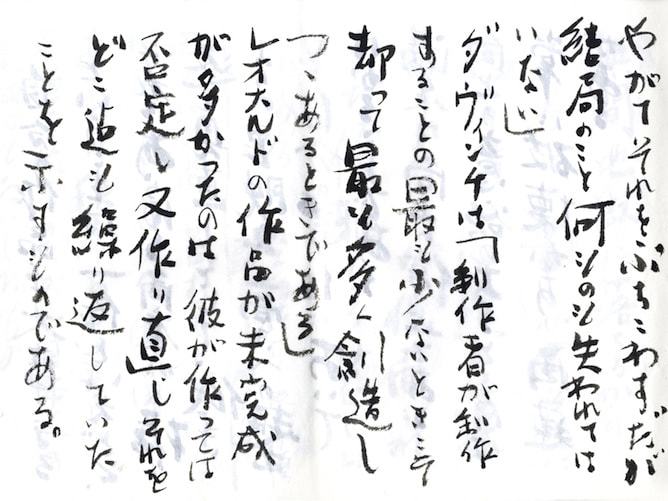 やがてそれをぶちこわす。だが
結局のこと何ものも失われては
いない」
ダヴィンチは「制作者が制作
することの最も少ないときこそ
却って最も多く創造し
つつあるときである」
レオナルドの作品が未完成
が多かったのは彼が作っては
否定し又作り直しそれを
どこ迄も繰り返していた
ことを示すものである。